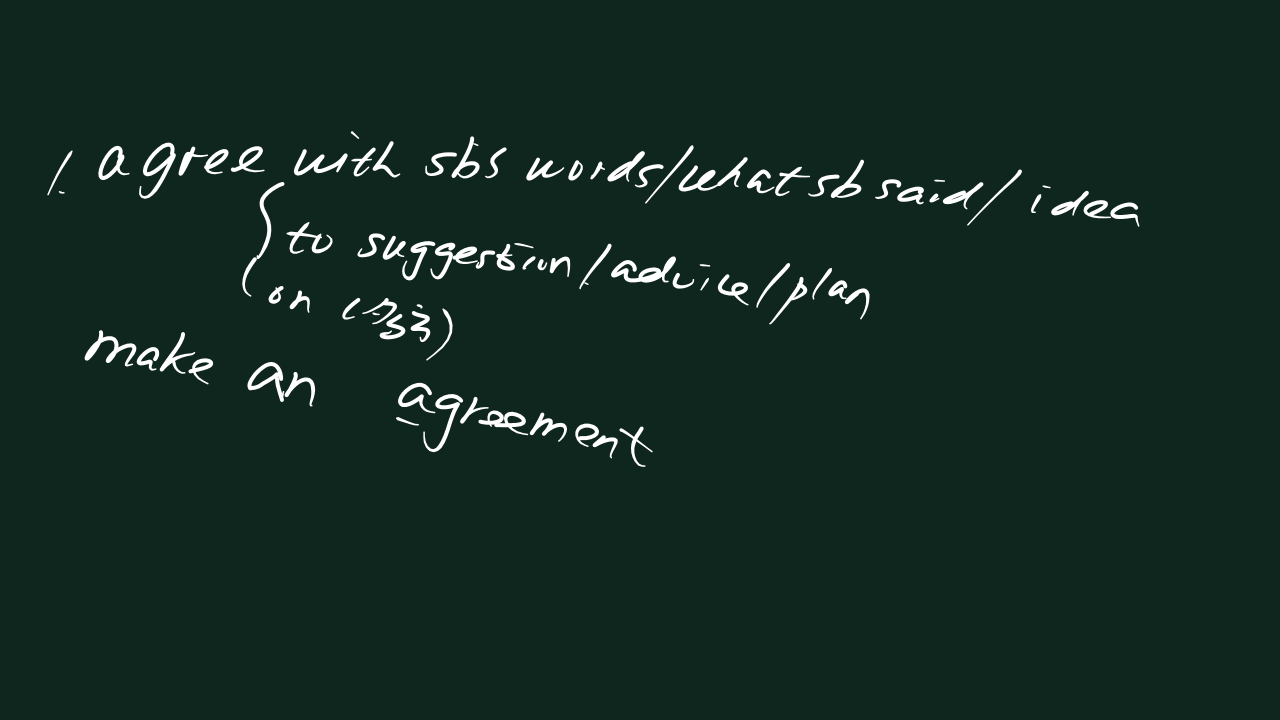 1. agree with sbs words/what sb said/ idea
to suggestion/advice/plan
on ( )
make an agreement